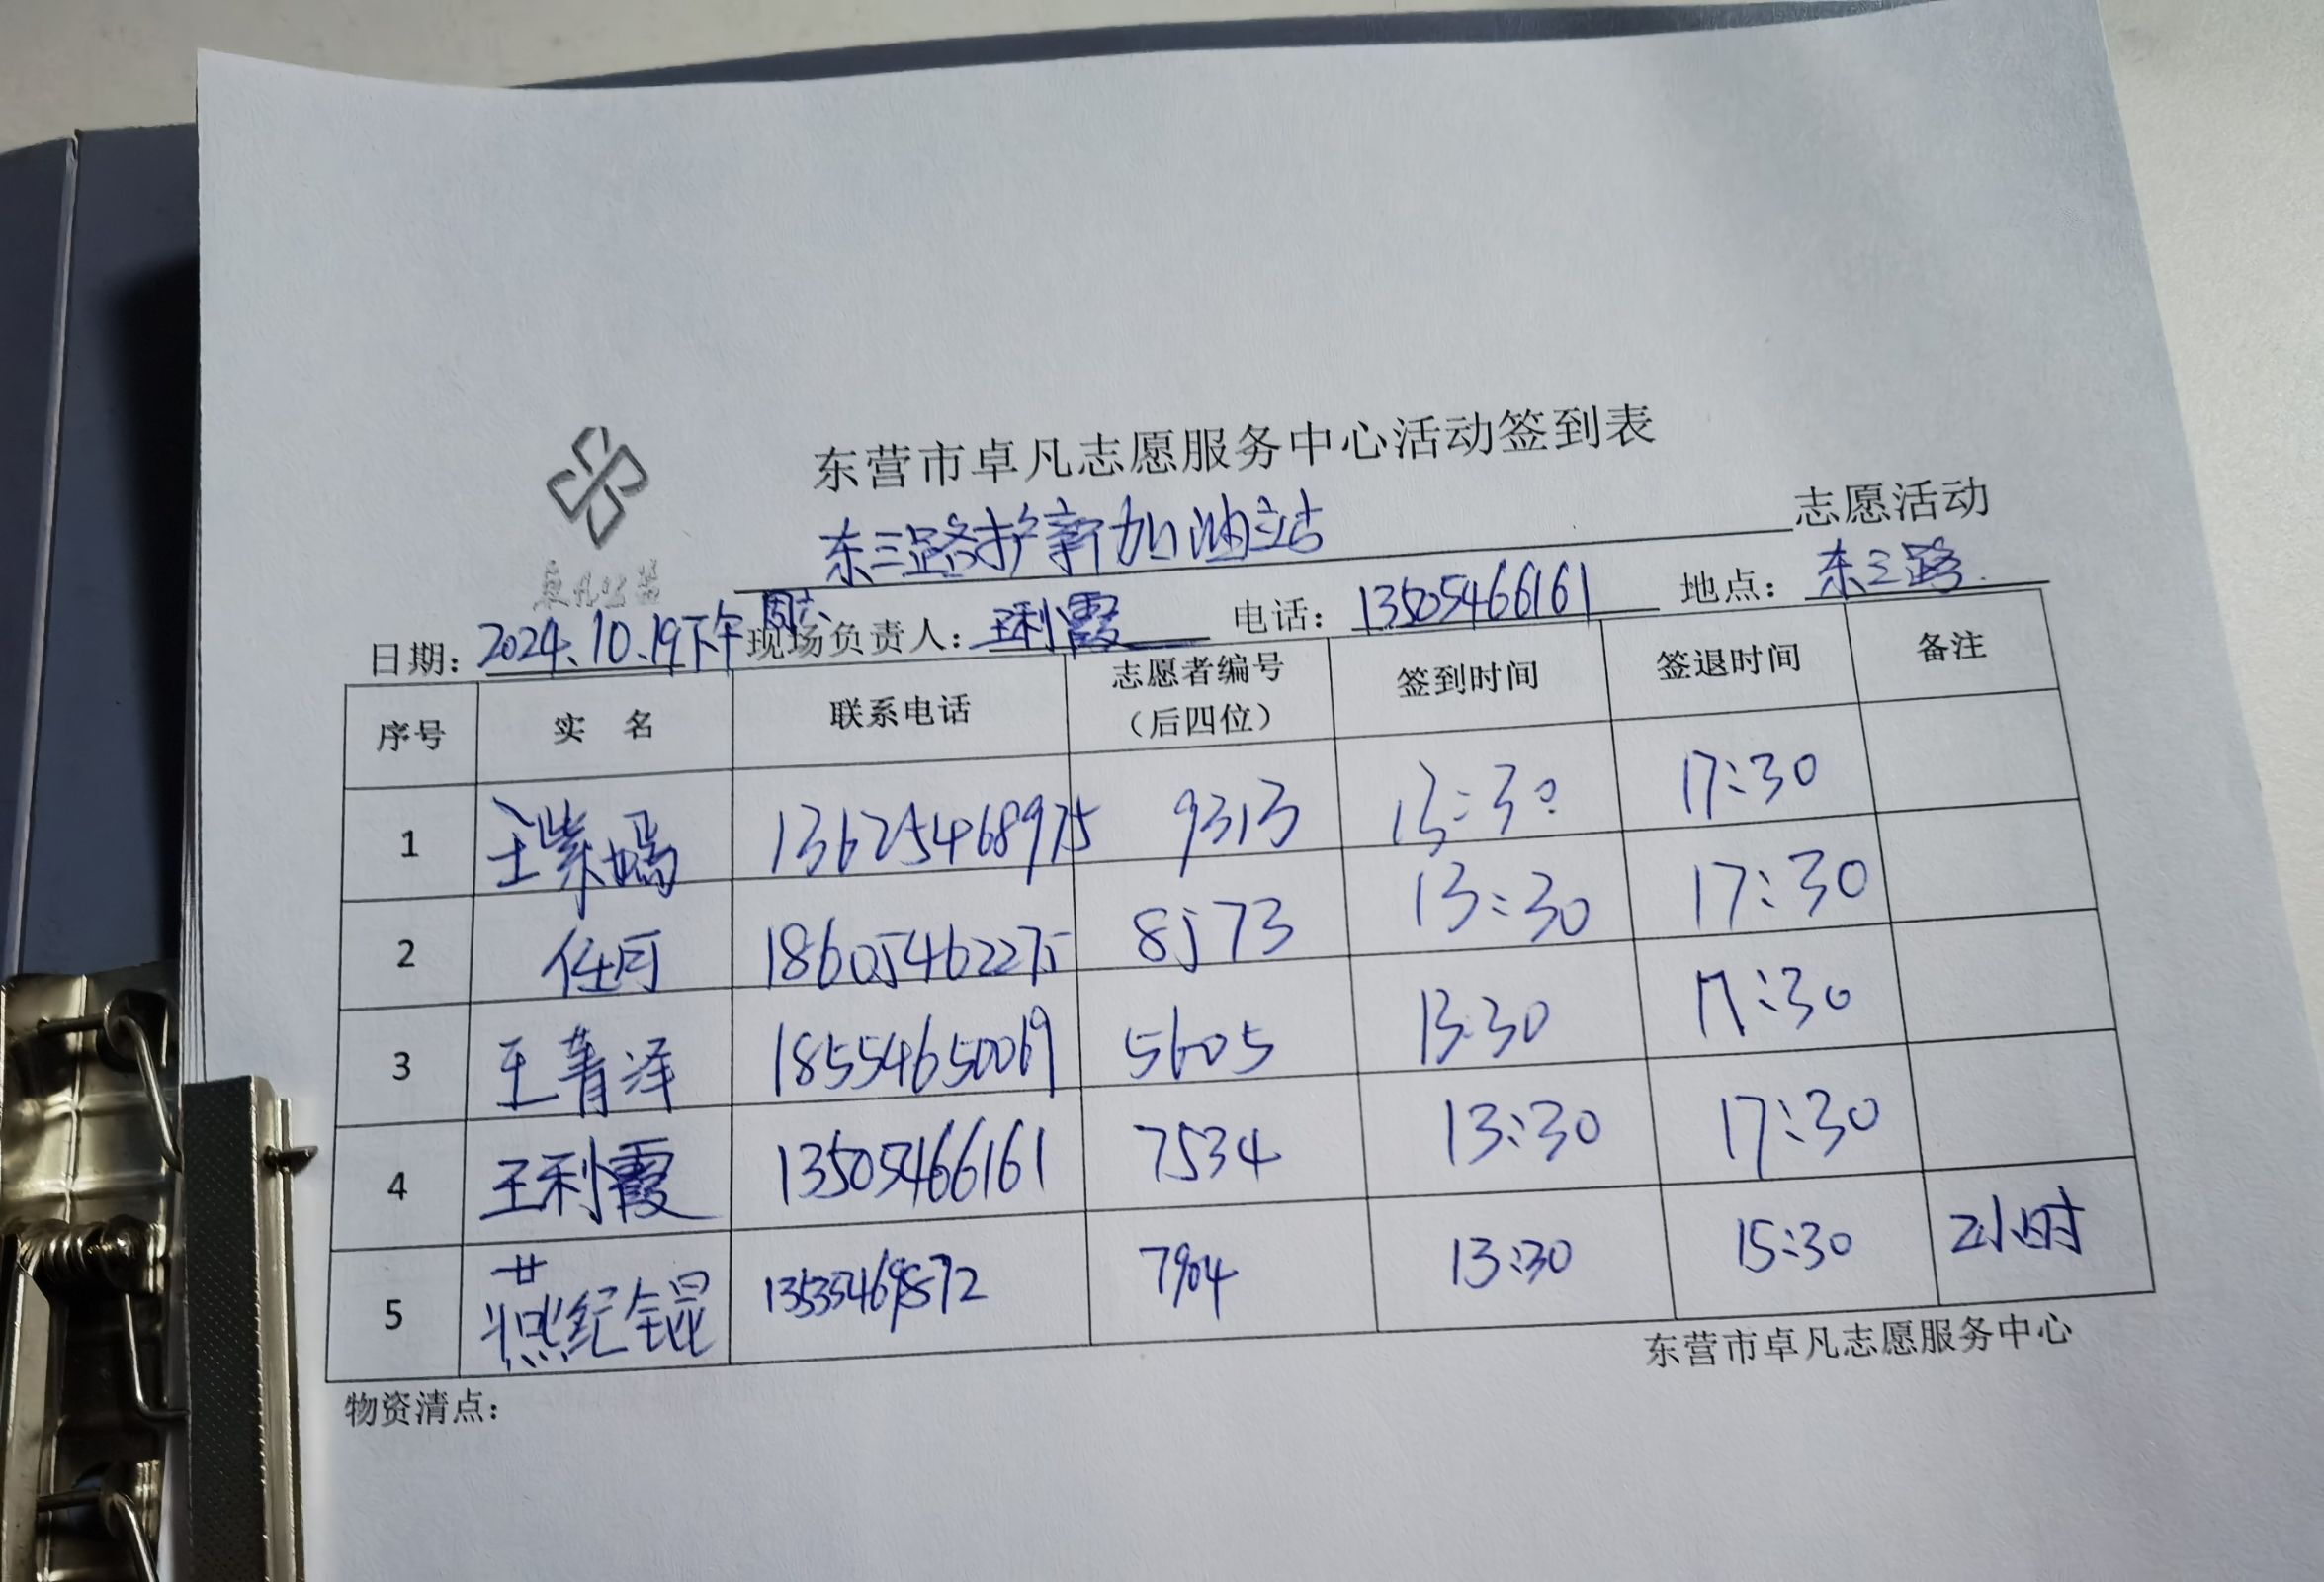 东营市卓凡志愿服务中心活动签到表
东三路护新加油站 志愿活动
卓凡公益
日期：2024.10.19下午周六 现场负责人：王利霞 电话：13505466161 地点：东三路
序号 实 名 联系电话 志愿者编号（后四位） 签到时间 签退时间 备注
1 王紫嫣 13625468975 9313 13:30 17:30
2 任可 18605462275 8573 13:30 17:30
3 王菁泽 18554650069 5605 13:30 17:30
4 王利霞 13505466161 7534 13:30 17:30
5 燕纪锟 7904 13:30 15:30 2小时
东营市卓凡志愿服务中心
物资清点：